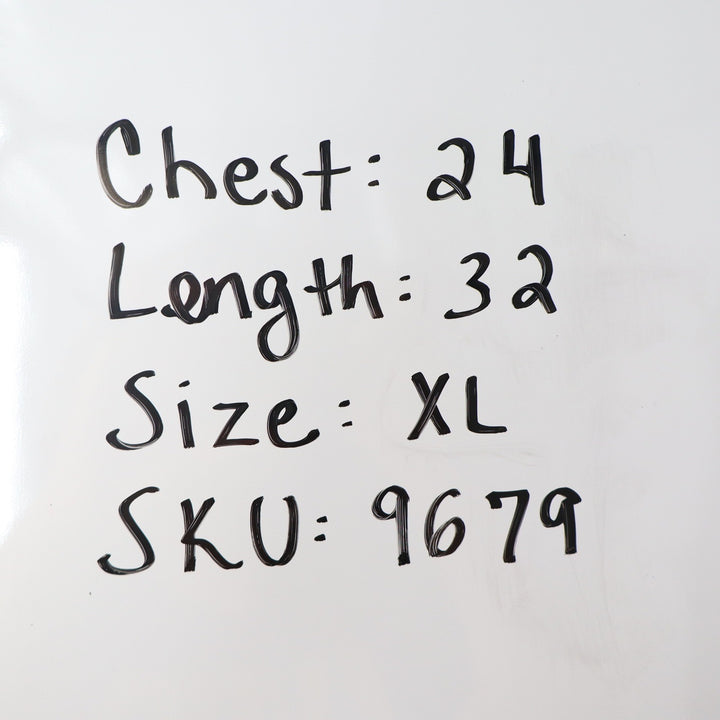 Chest: 24
Length: 32
Size: XL
SKU: 9679